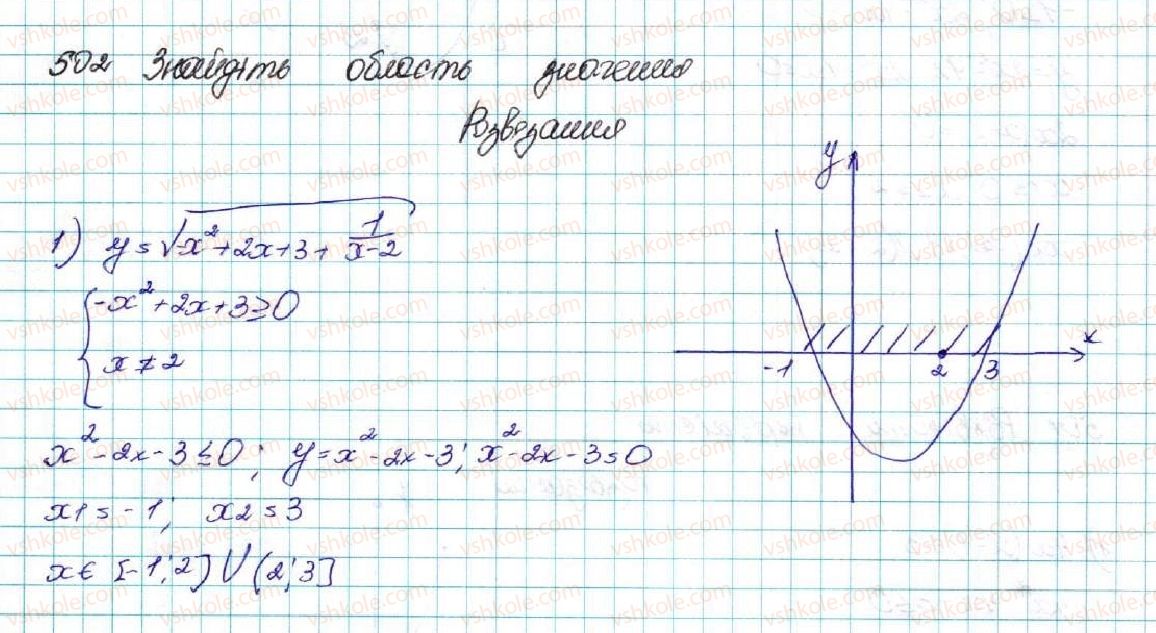 502 Знайдіть область значення
Розвезання
1) y = √-x² + 2x + 3 + 1/(x-2)
{ -x² + 2x + 3 ≥ 0
x ≠ 2
x² - 2x - 3 ≤ 0; y = x² - 2x - 3; x² - 2x - 3 = 0
x1 = -1; x2 = 3
x ∈ [-1; 2] ∪ (2; 3]
y
x
-1
2
3
vshkole.com